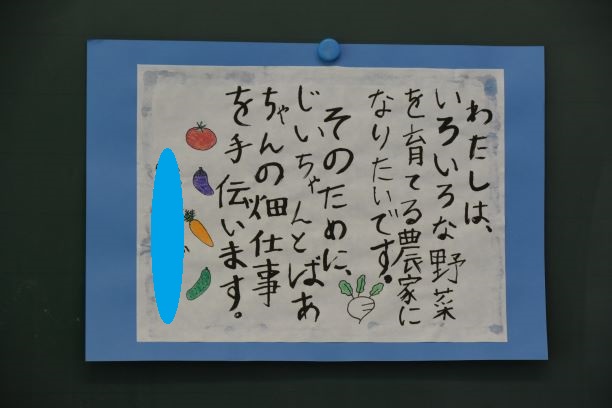 わたしは、
いろいろな野菜
を育てる農家に
なりたいです。
そのために、
じいちゃんとばあ
ちゃんの畑仕事
を手伝います。